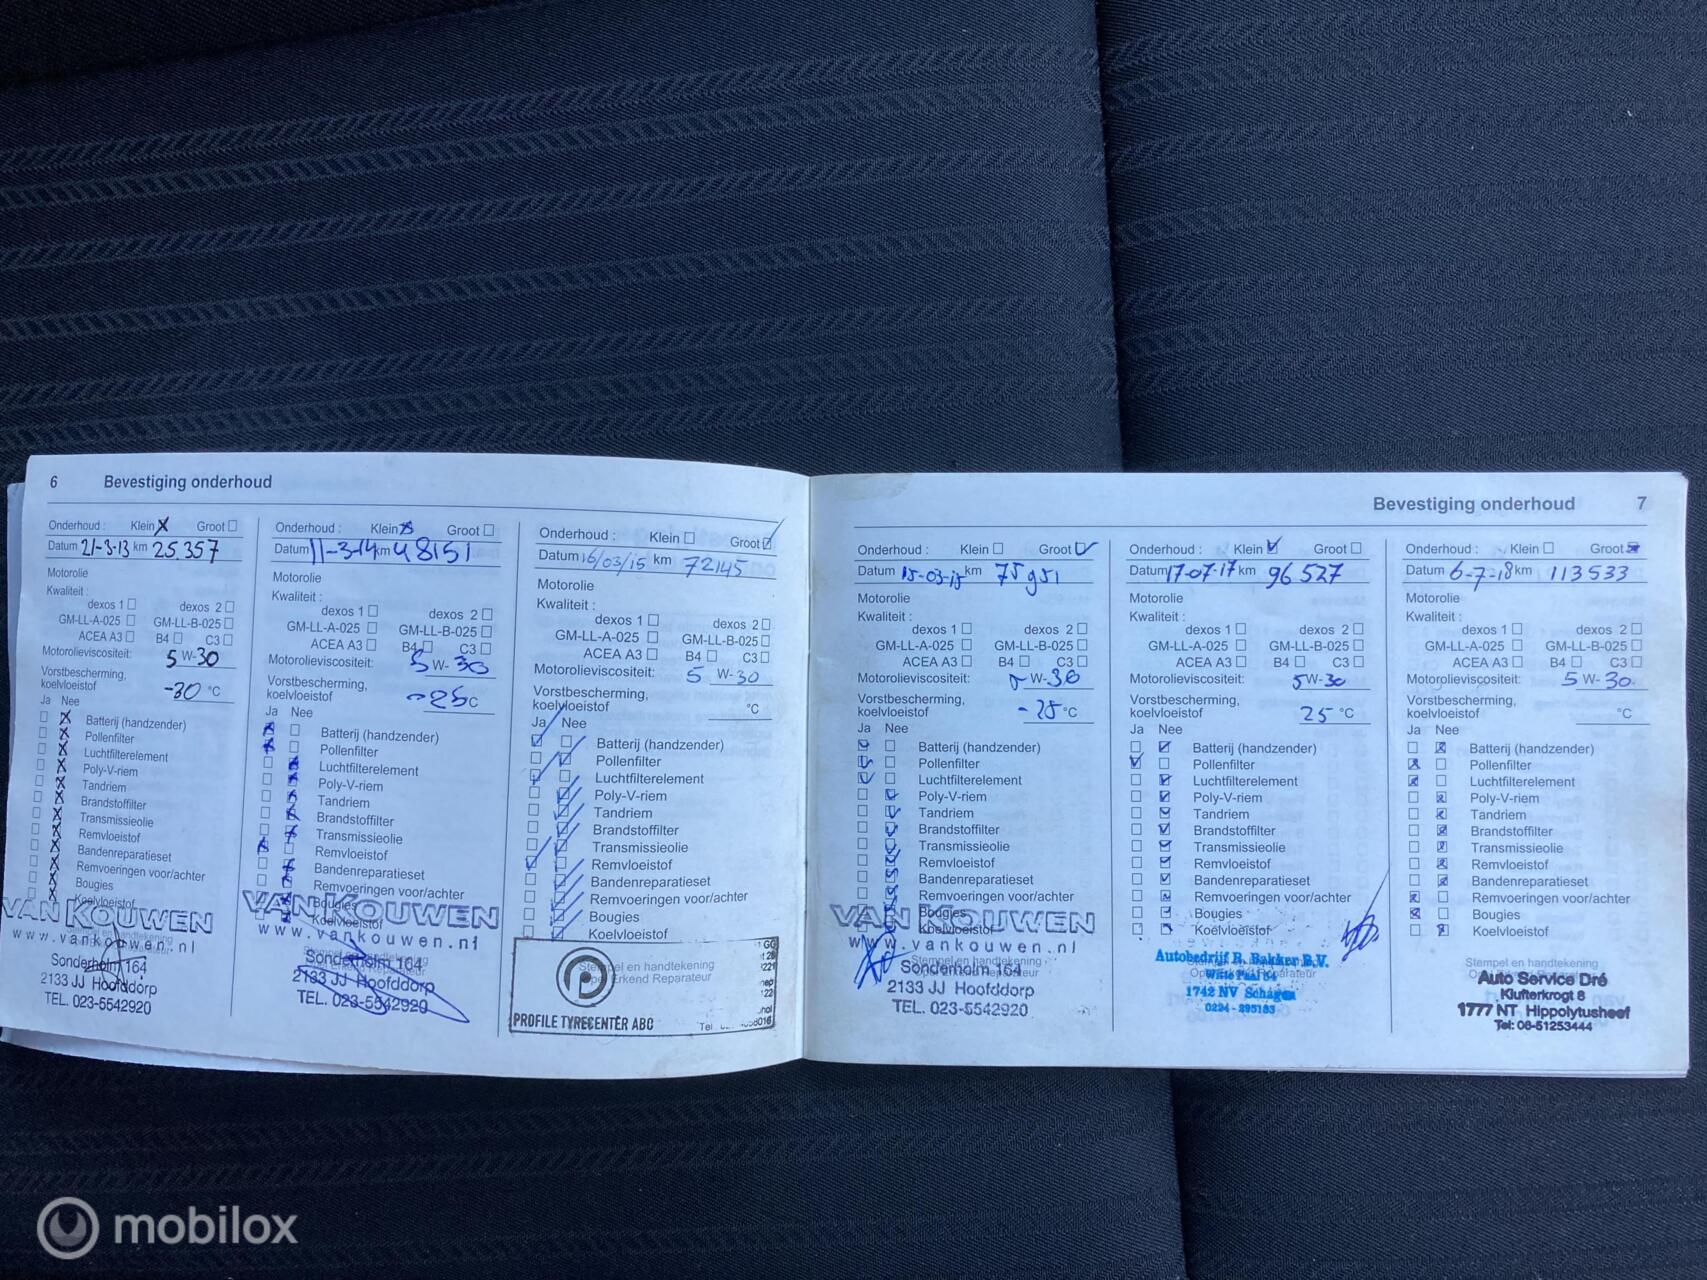 6 Bevestiging onderhoud
Onderhoud : Klein X Groot
Datum 21-3-13 km 25.357
Motorolie
Kwaliteit :
dexos 1 dexos 2
GM-LL-A-025 GM-LL-B-025
ACEA A3 B4 C3
Motorolieviscositeit: 5 W-30
Vorstbescherming,
koelvloeistof -30 °C
Ja Nee
Batterij (handzender)
Pollenfilter
Luchtfilterelement
Poly-V-riem
Tandriem
Brandstoffilter
Transmissieolie
Remvloeistof
Bandenreparatieset
Remvoeringen voor/achter
Bougies
Koelvloeistof
VAN KOUWEN
www.vankouwen.nl
Sonderholm 164
2133 JJ Hoofddorp
TEL. 023-5542920
Onderhoud : Klein X Groot
Datum 11-3-14 km 48151
Motorolie
Kwaliteit :
dexos 1 dexos 2
GM-LL-A-025 GM-LL-B-025
ACEA A3 B4 C3
Motorolieviscositeit: 5 W-30
Vorstbescherming,
koelvloeistof -25 °C
Ja Nee
Batterij (handzender)
Pollenfilter
Luchtfilterelement
Poly-V-riem
Tandriem
Brandstoffilter
Transmissieolie
Remvloeistof
Bandenreparatieset
Remvoeringen voor/achter
Bougies
Koelvloeistof
VAN KOUWEN
www.vankouwen.nl
Sonderholm 164
2133 JJ Hoofddorp
TEL. 023-5542920
Onderhoud : Klein Groot
Datum 16/03/15 km 72145
Motorolie
Kwaliteit :
dexos 1 dexos 2
GM-LL-A-025 GM-LL-B-025
ACEA A3 B4 C3
Motorolieviscositeit: 5 W-30
Vorstbescherming,
koelvloeistof °C
Ja Nee
Batterij (handzender)
Pollenfilter
Luchtfilterelement
Poly-V-riem
Tandriem
Brandstoffilter
Transmissieolie
Remvloeistof
Bandenreparatieset
Remvoeringen voor/achter
Bougies
Koelvloeistof
Stempel en handtekening
Opel Erkend Reparateur
PROFILE TYRECENTER ABC
Tel
Bevestiging onderhoud 7
Onderhoud : Klein Groot
Datum km 75951
Motorolie
Kwaliteit :
dexos 1 dexos 2
GM-LL-A-025 GM-LL-B-025
ACEA A3 B4 C3
Motorolieviscositeit: 5 W-30
Vorstbescherming,
koelvloeistof -25 °C
Ja Nee
Batterij (handzender)
Pollenfilter
Luchtfilterelement
Poly-V-riem
Tandriem
Brandstoffilter
Transmissieolie
Remvloeistof
Bandenreparatieset
Remvoeringen voor/achter
Bougies
Koelvloeistof
VAN KOUWEN
www.vankouwen.nl
Sonderholm 164
2133 JJ Hoofddorp
TEL. 023-5542920
Onderhoud : Klein Groot
Datum 17-07-17 km 96527
Motorolie
Kwaliteit :
dexos 1 dexos 2
GM-LL-A-025 GM-LL-B-025
ACEA A3 B4 C3
Motorolieviscositeit: 5 W-30
Vorstbescherming,
koelvloeistof 25 °C
Ja Nee
Batterij (handzender)
Pollenfilter
Luchtfilterelement
Poly-V-riem
Tandriem
Brandstoffilter
Transmissieolie
Remvloeistof
Bandenreparatieset
Remvoeringen voor/achter
Bougies
Koelvloeistof
Autobedrijf R. Bakker B.V.
Witte Paal 34
1742 NV Schagen
0224 - 295183
Onderhoud : Klein Groot
Datum 6-7-18 km 113533
Motorolie
Kwaliteit :
dexos 1 dexos 2
GM-LL-A-025 GM-LL-B-025
ACEA A3 B4 C3
Motorolieviscositeit: 5 W-30
Vorstbescherming,
koelvloeistof °C
Ja Nee
Batterij (handzender)
Pollenfilter
Luchtfilterelement
Poly-V-riem
Tandriem
Brandstoffilter
Transmissieolie
Remvloeistof
Bandenreparatieset
Remvoeringen voor/achter
Bougies
Koelvloeistof
Stempel en handtekening
Auto Service Dré
Klufterkrogt 8
1777 NT Hippolytushoef
Tel: 06-51253444
mobilox